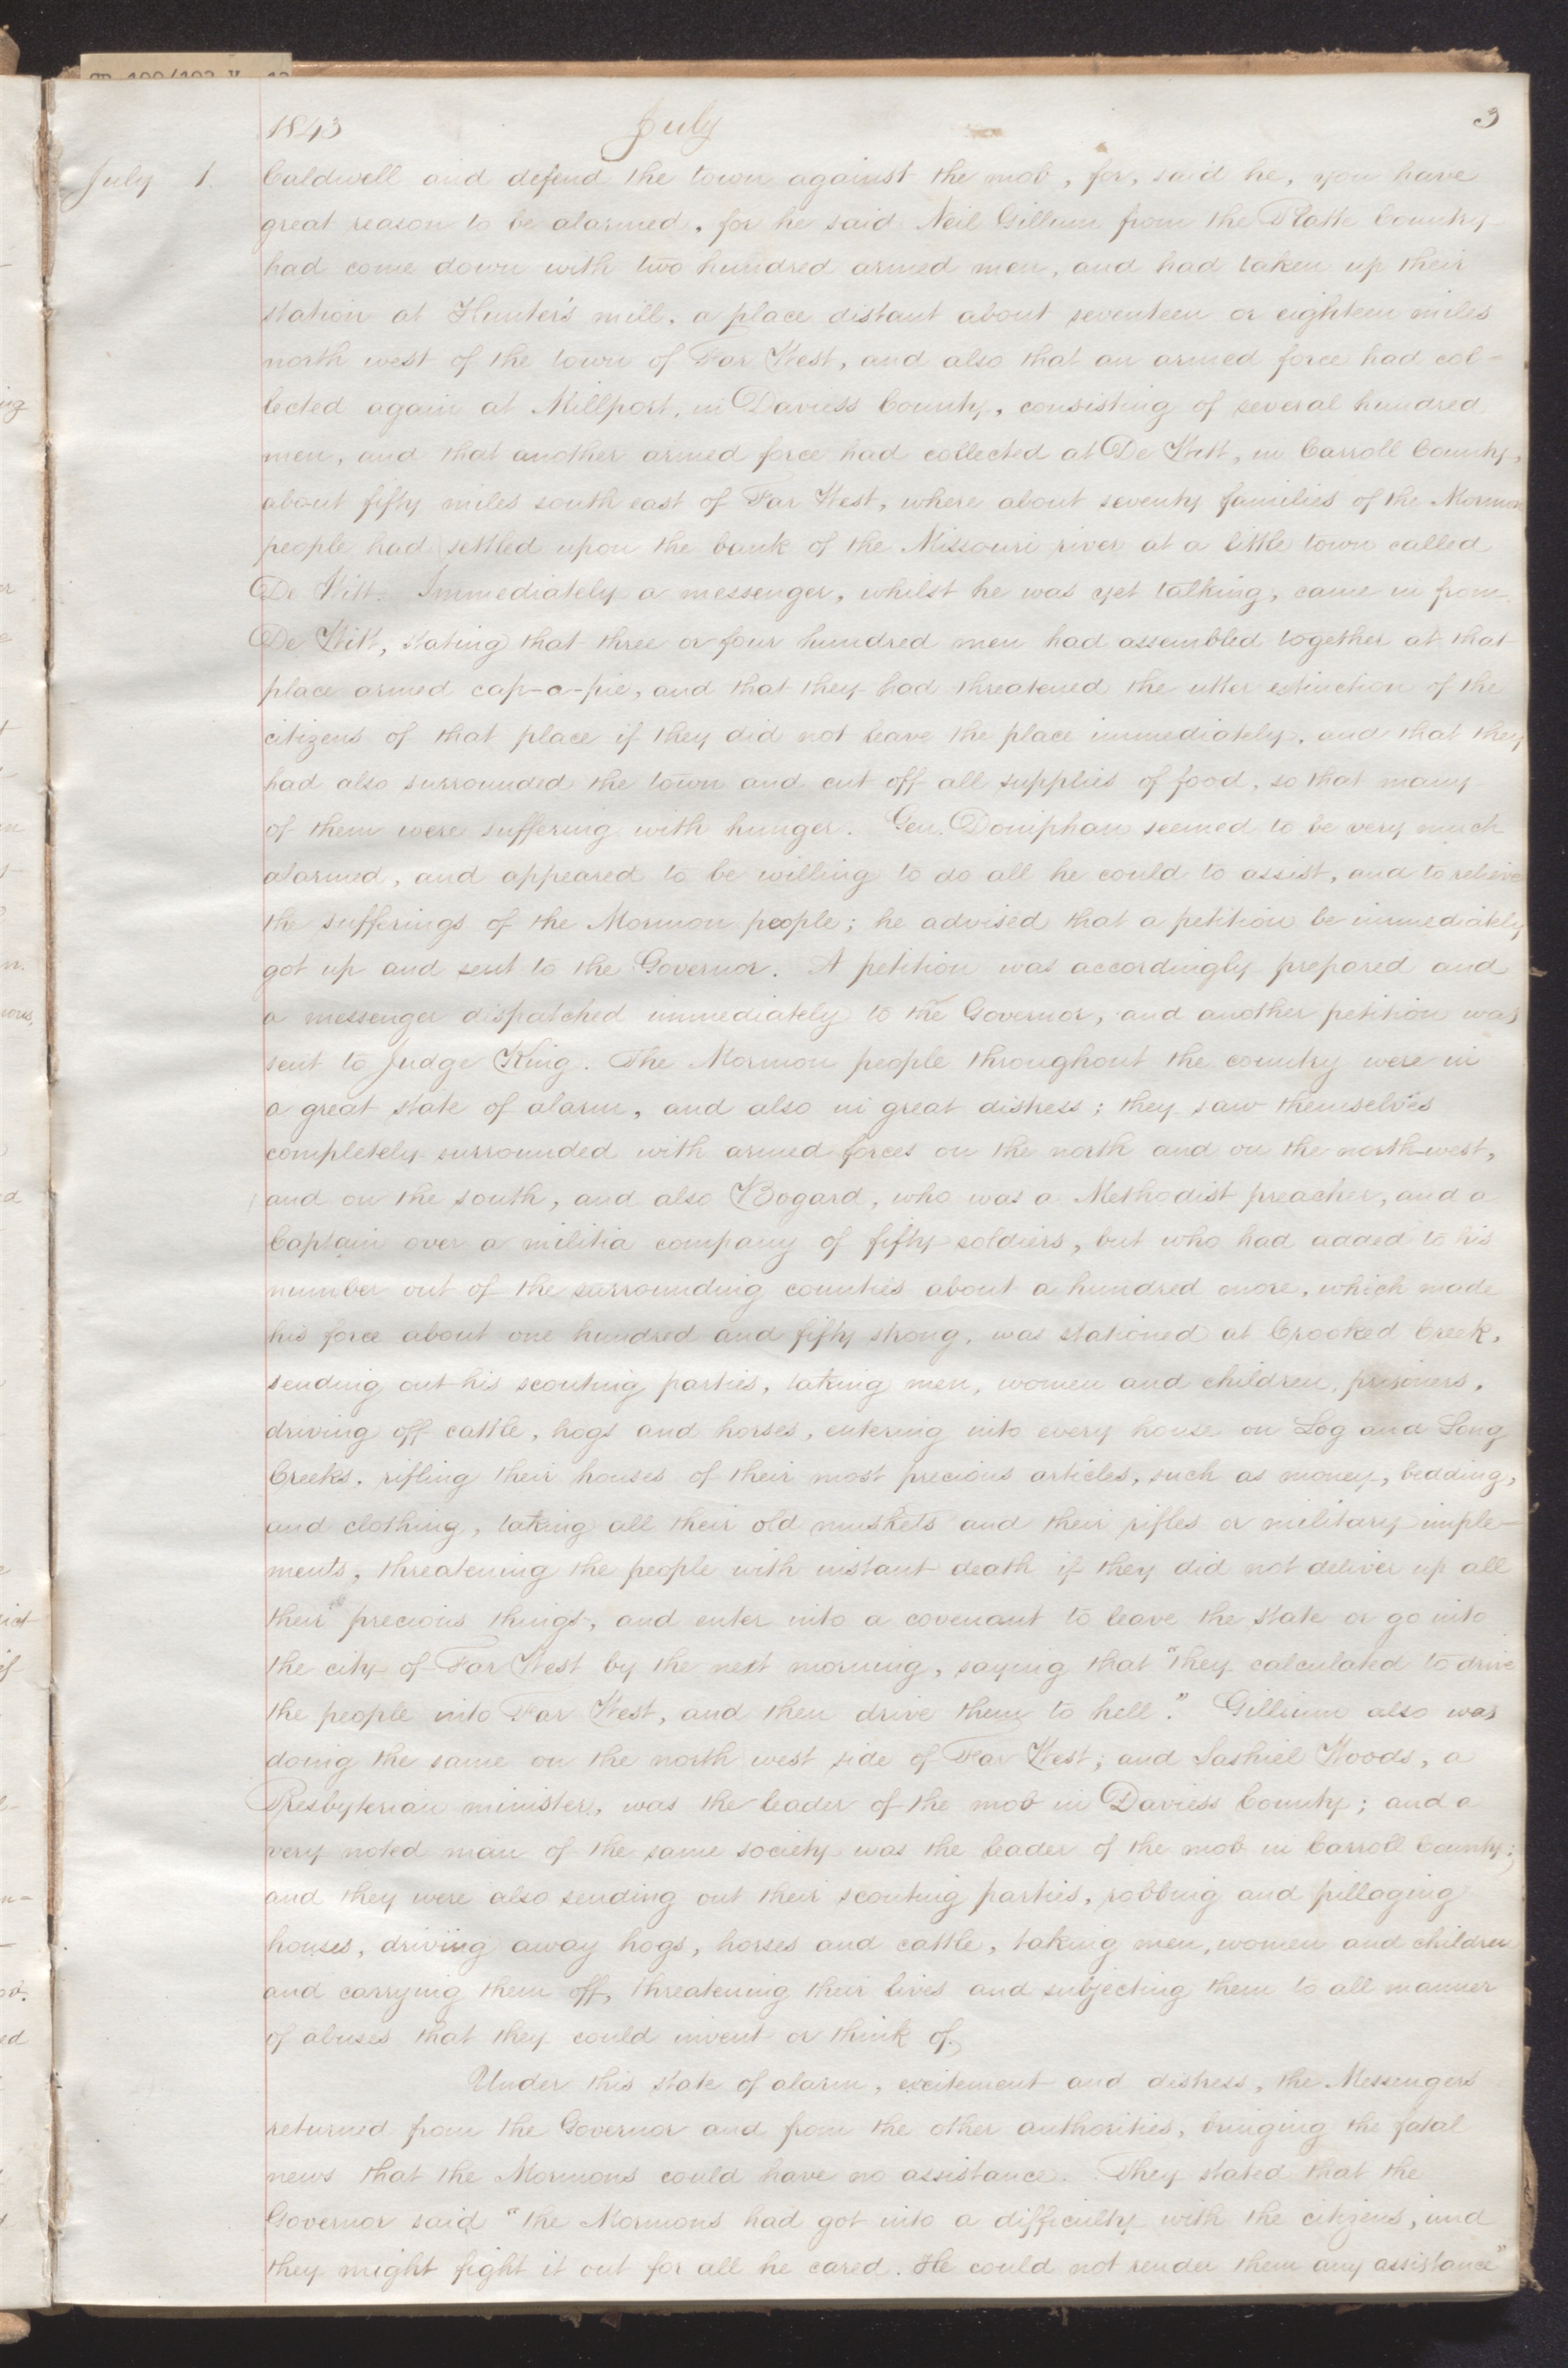 1843 July 3
July 1. Caldwell and defend the town against the mob, for, said he, you have
great reason to be alarmed, for he said Neil Gillum from the Platte Country
had come down with two hundred armed men, and had taken up their
station at Hunter's mill, a place distant about seventeen or eighteen miles
north west of the town of Far West, and also that an armed force had col-
lected again at Millport, in Daviess County, consisting of several hundred
men, and that another armed force had collected at De Witt, in Carroll County,
about fifty miles south east of Far West, where about seventy families of the Mormon
people had settled upon the bank of the Missouri river at a little town called
De Witt. Immediately a messenger, whilst he was yet talking, came in from
De Witt, stating that three or four hundred men had assembled together at that
place armed cap-a-pie, and that they had threatened the utter extinction of the
citizens of that place if they did not leave the place immediately, and that they
had also surrounded the town and cut off all supplies of food, so that many
of them were suffering with hunger. Gen. Doniphan seemed to be very much
alarmed, and appeared to be willing to do all he could to assist, and to relieve
the sufferings of the Mormon people; he advised that a petition be immediately
got up and sent to the Governor. A petition was accordingly prepared and
a messenger dispatched immediately to the Governor, and another petition was
sent to Judge King. The Mormon people throughout the country were in
a great state of alarm, and also in great distress; they saw themselves
completely surrounded with armed forces on the north and on the north-west,
and on the south, and also Bogard, who was a Methodist preacher, and a
Captain over a militia company of fifty soldiers, but who had added to his
number out of the surrounding counties about a hundred more, which made
his force about one hundred and fifty strong, was stationed at Crooked Creek,
sending out his scouting parties, taking men, women and children, prisoners,
driving off cattle, hogs and horses, entering into every house on Log and Long
Creeks, rifling their houses of their most precious articles, such as money, bedding,
and clothing, taking all their old muskets and their rifles or military imple-
ments, threatening the people with instant death if they did not deliver up all
their precious things, and enter into a covenant to leave the state or go into
the city of Far West by the next morning, saying that "they calculated to drive
the people into Far West, and then drive them to hell." Gillium also was
doing the same on the north west side of Far West; and Sashiel Woods, a
Presbyterian minister, was the leader of the mob in Daviess County; and a
very noted man of the same society was the leader of the mob in Carroll County;
and they were also sending out their scouting parties, robbing and pillaging
houses, driving away hogs, horses and cattle, taking men, women and children
and carrying them off, threatening their lives and subjecting them to all manner
of abuses that they could invent or think of.
Under this state of alarm, excitement and distress, the Messengers
returned from the Governor and from the other authorities, bringing the fatal
news that the Mormons could have no assistance. They stated that the
Governor said "the Mormons had got into a difficulty with the citizens, and
they might fight it out for all he cared. He could not render them any assistance"